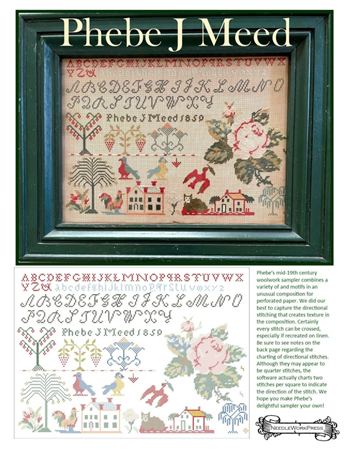 Phebe J Meed
ABCDEFGHIJKLMNOPQRSTUVWX
YZ&
ABCDEFGHIJKLMN
OPQRSTUVWXY
Phebe J Meed 1859
ABCDEFGHIJKLMNOPQRSTUVWX
YZ& abcdefghijklmnopqrstuvwxyz
ABCDEFGHIJKLMN
OPQRSTUVWXY
Phebe J Meed 1859
Phebe's mid-19th century
woolwork sampler combines a
variety of and motifs in an
unusual composition for
perforated paper. We did our
best to capture the directional
stitching that creates texture in
the composition. Certainly
every stitch can be crossed,
especially if recreated on linen.
Be sure to see notes on the
back page regarding the
charting of directional stitches.
Although they may appear to
be quarter stitches, the
software actually charts two
stitches per square to indicate
the direction of the stitch. We
hope you make Phebe's
delightful sampler your own!
NEEDLEWORKPRESS